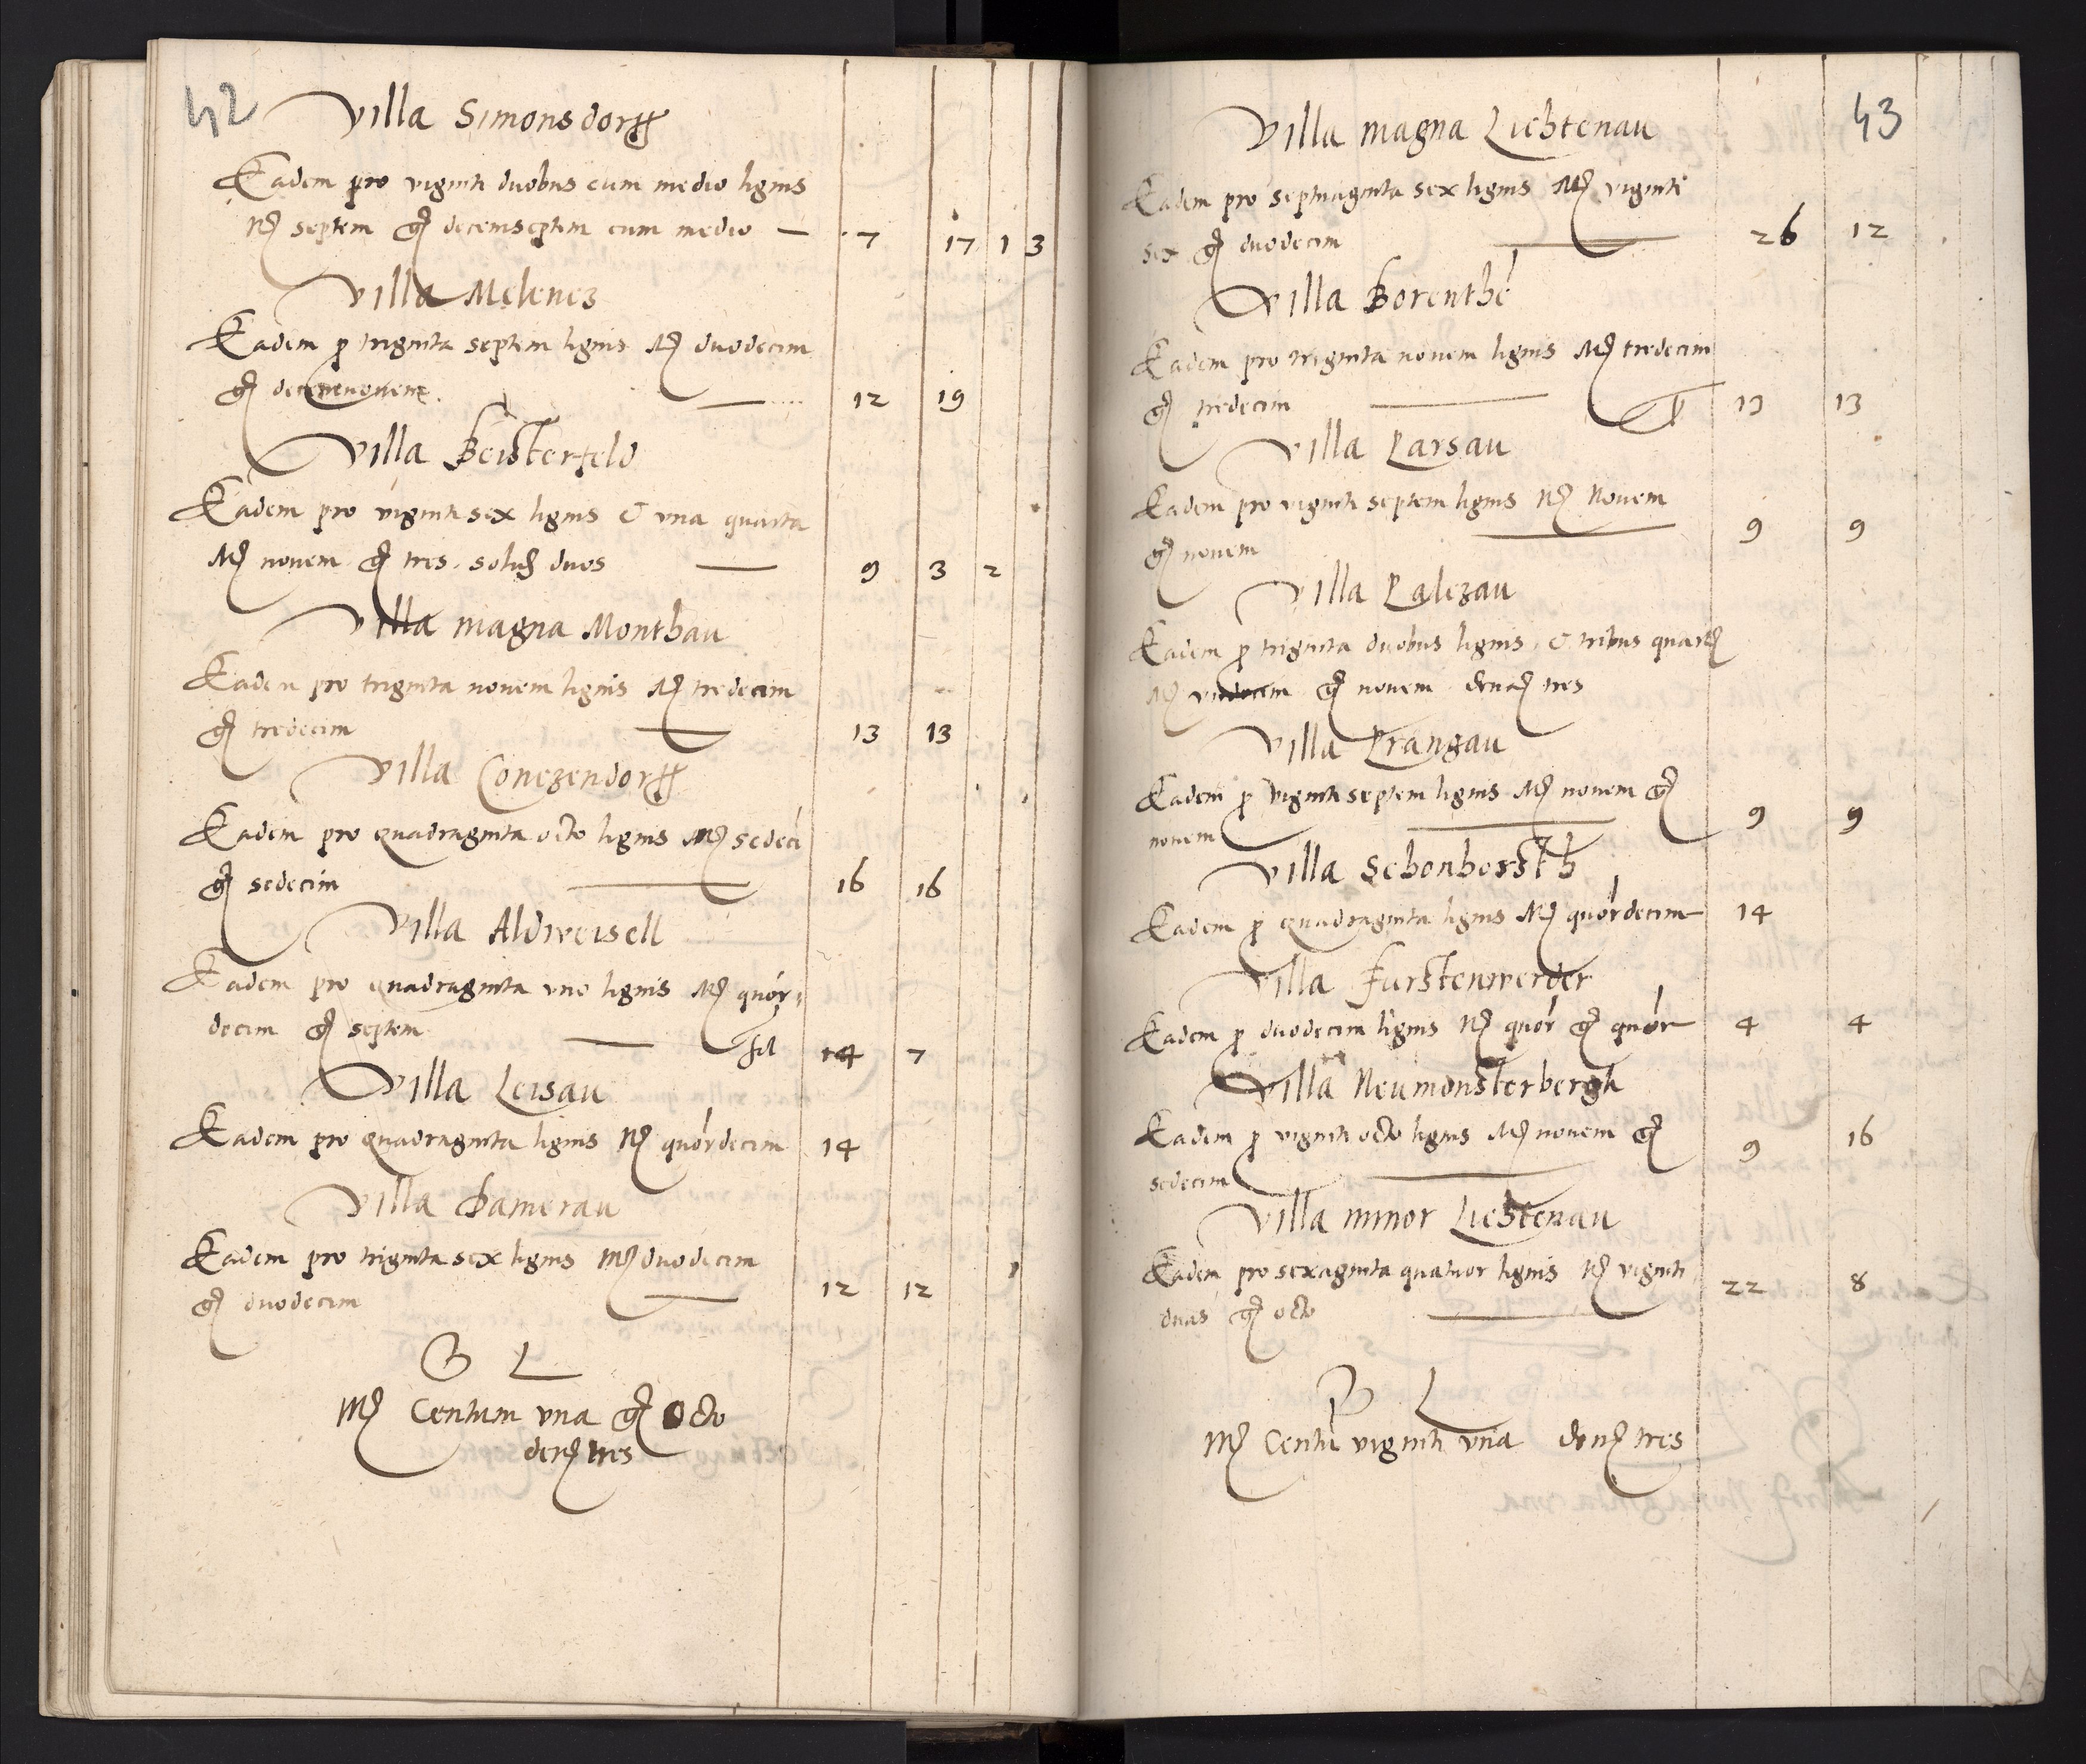 42
Villa Simonsdorff
Eadem pro viginti duobus cum medio lignis
M septem g decemseptem cum medio — 7 17 1 3
Villa Melencz
Eadem p triginta septem lignis M duodecim
g decemnovem. — 12 19
Villa Beisterfeld
Eadem pro viginti sex lignis & una quarta
M novem g tres solid duos — 9 3 2
Villa magna Monthau
Eadem pro triginta novem lignis M tredecim
g tredecim — 13 13
Villa Conczendorff
Eadem pro quadraginta octo lignis M sedeci
g sedecim — 16 16
Villa Aldweisell
Eadem pro quadraginta uno lignis M quor-
decim g septem — 14 7
Villa Leisau
Eadem pro quadraginta lignis M quordecim 14
Villa Damerau
Eadem pro triginta sex lignis M duodecim
g duodecim — 12 12
L
M Centum una g octo
den tres
43
Villa magna Lichtenau
Eadem pro septuaginta sex lignis M viginti
sex g duodecim — 26 12
Villa Borenthe
Eadem pro triginta novem lignis M tredecim
g tredecim — 13 13
Villa Parsau
Eadem pro viginti septem lignis M Novem
g novem — 9 9
Villa Palczau
Eadem p triginta duobus lignis & tribus quart
M undecim g novem denar tres
Villa Prangau
Eadem p viginti septem lignis M novem g
novem — 9 9
Villa Schonhorsth
Eadem p quadraginta lignis M quordecim — 14
Villa Furstenwerder
Eadem p duodecim lignis M quor g quor — 4 4
Villa Neumonsterbergk
Eadem p viginti octo lignis M novem g
sedecim — 9 16
Villa minor Lichtenau
Eadem pro sexaginta quatuor lignis M viginti
duas g octo — 22 8
L
M Centu viginti una den tres